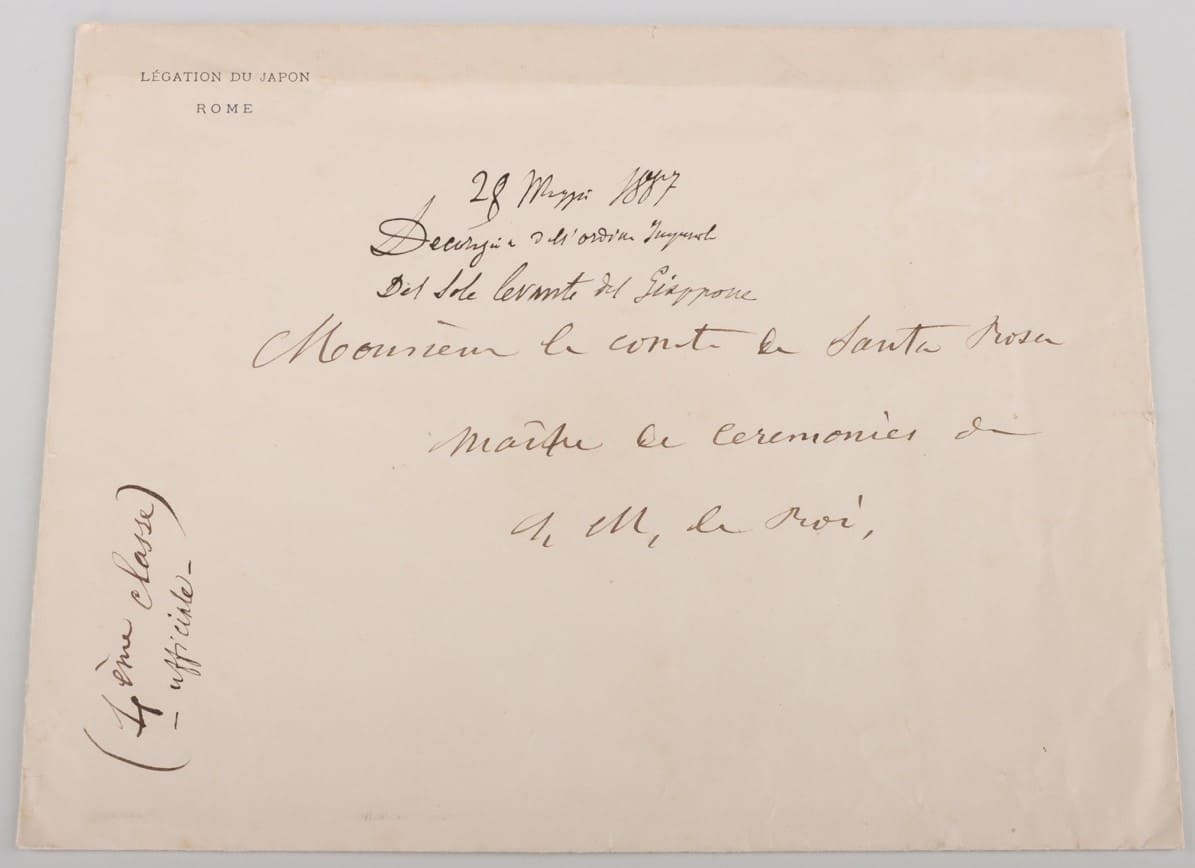 LÉGATION DU JAPON
ROME
28 Maggio 1887
Decorazione dell'ordine Imperiale
Del Sole levante del Giappone
Monsieur le comte de Santa Rosa
Maître de ceremonies de
S. M, le Roi,
(4ème classe)
- ufficiale -